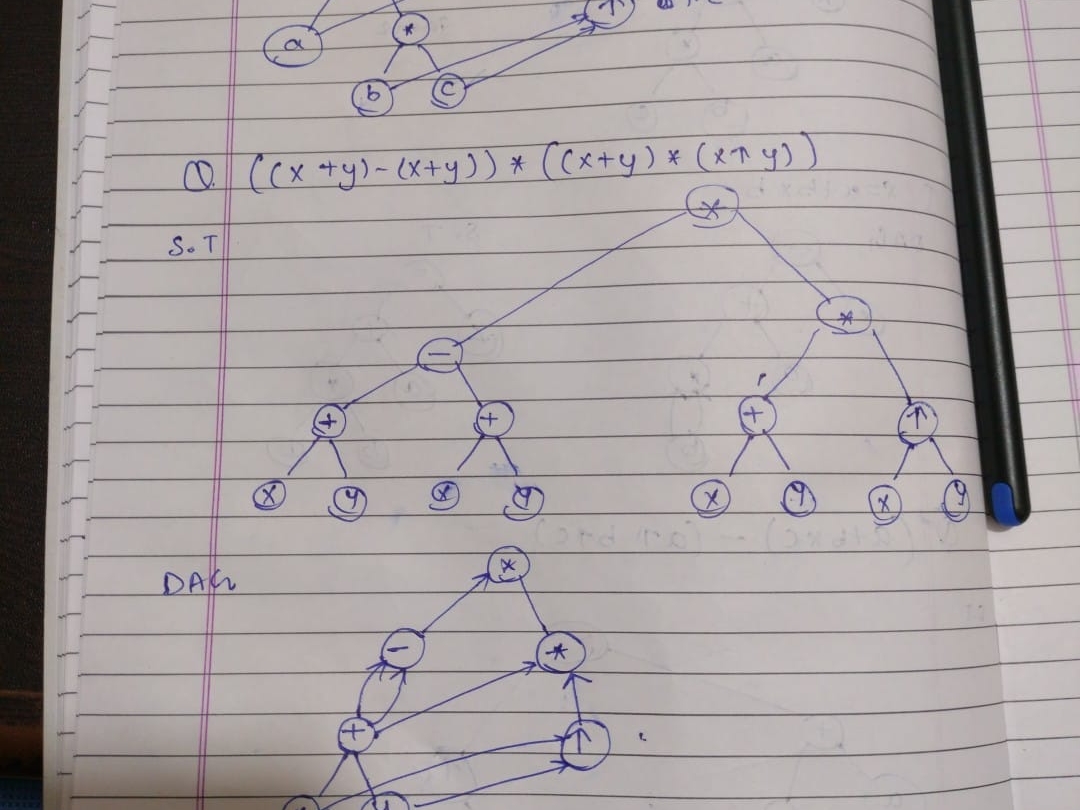 a
*
↑
b c
Q. ((x+y)-(x+y)) * ((x+y) * (x↑y))
S.T
*
*
-
+ + + ↑
x y x y x y x y
DAG
*
- *
+ ↑